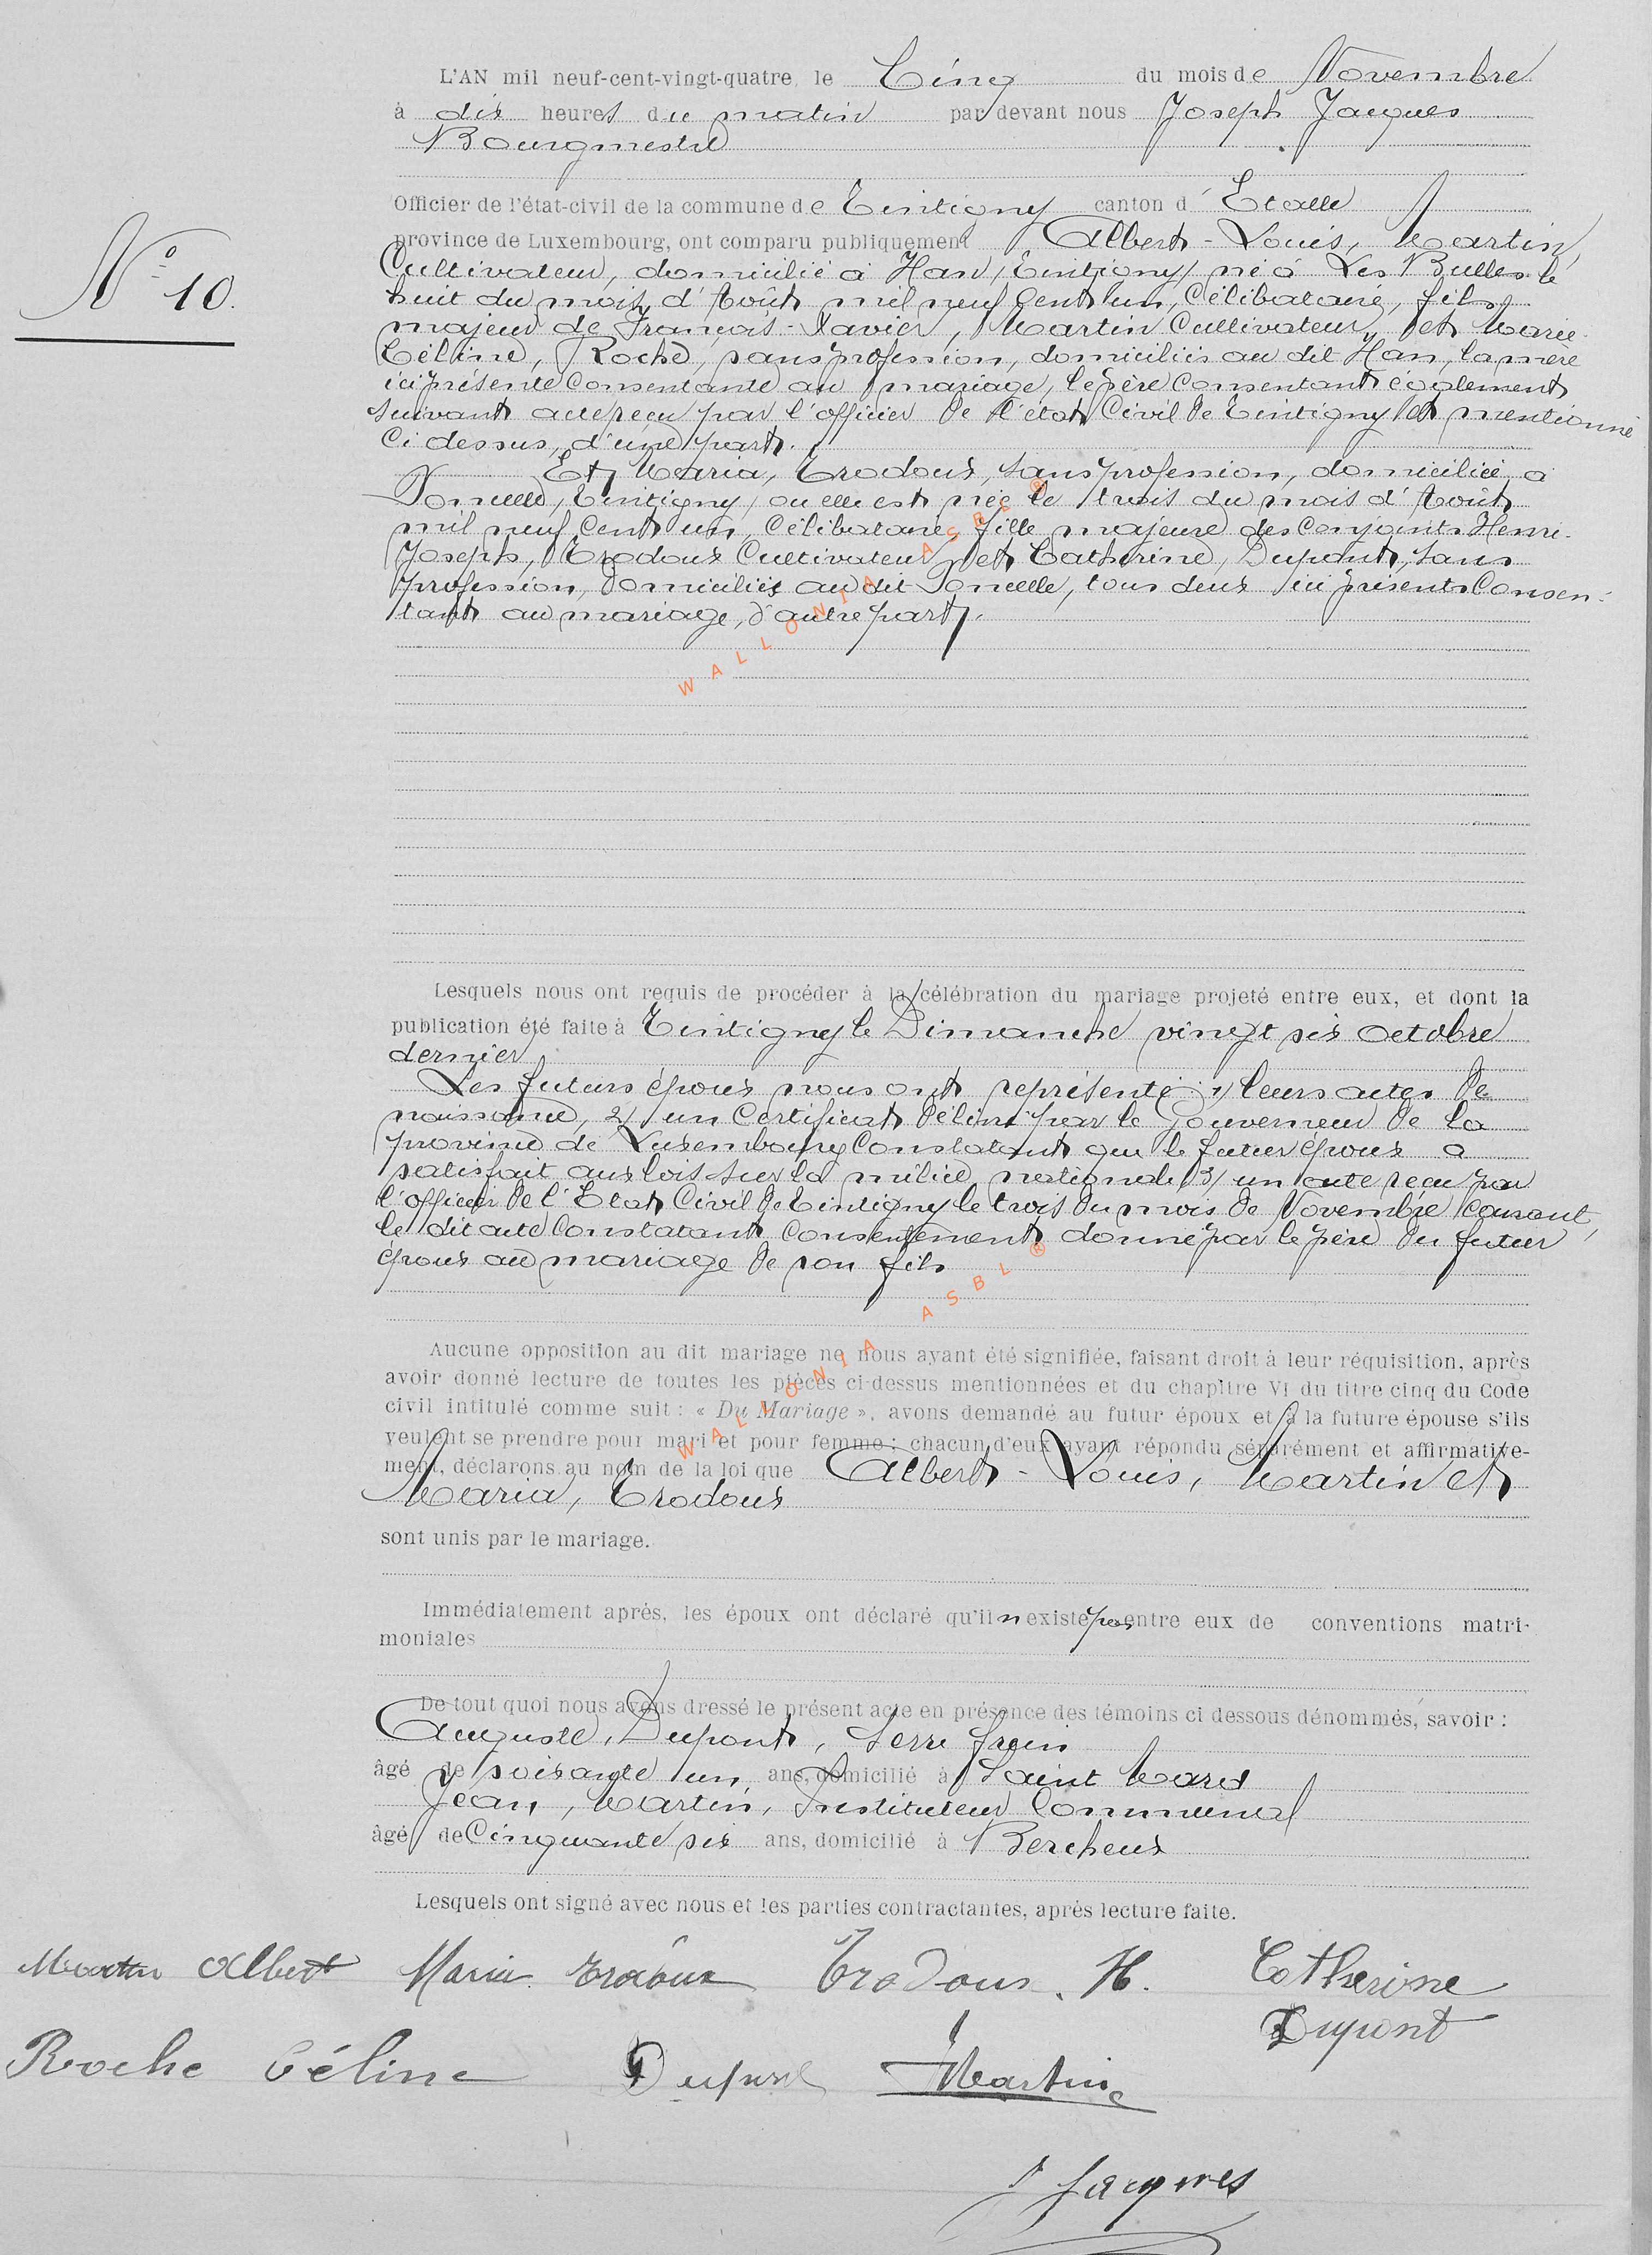 L'AN mil neuf-cent-vingt-quatre, le Cinq du mois de Novembre
à dix heures du matin par devant nous Joseph Jacques
Bourgmestre
Officier de l'état-civil de la commune de Tintigny canton d' Etalle
N° 10.
province de Luxembourg, ont comparu publiquement Albert-Louis, Martin,
Cultivateur, domicilié à Han, Tintigny, né à Les Bulles le
huit du mois d'Août mil neuf cent un, Célibataire, fils
majeur de François-Xavier, Martin Cultivateur, et Marie-
Céline, Roche, sans profession, domiciliés au dit Han, la mère
ici présente Consentante au mariage, le père Consentant également
suivant acte reçu par l'officier de l'état Civil de Tintigny et mentionné
Ci dessus, d'une part.
Et Maria, Trodoux, sans profession, domiciliée à
Poncelle, Tintigny, ou elle est née le trois du mois d'Août
mil neuf Cent un, Célibataire fille majeure des Conjoints Henri-
Joseph, Trodoux Cultivateur et Catherine, Dupont, sans
profession, domiciliés au dit Poncelle, tous deux ici présents Consen-
tant au mariage, d'autre part.
WALLONIA ASBL ®
Lesquels nous ont requis de procéder à la célébration du mariage projeté entre eux, et dont la
publication été faite à Tintigny le Dimanche vingt six Octobre
dernier
Les futurs époux nous ont représenté: 1/ leurs actes de
naissance, 2/ un Certificat délivré par le Gouverneur de la
province de Luxembourg Constatant que le futur époux a
satisfait aux lois sur la milice nationale 3/ un acte reçu par
l'officier de l'Etat Civil de Tintigny le trois du mois de Novembre Courant,
le dit acte Constatant Consentement donné par le père du futur
époux au mariage de son fils
Aucune opposition au dit mariage ne nous ayant été signifiée, faisant droit à leur réquisition, après
avoir donné lecture de toutes les pièces ci-dessus mentionnées et du chapitre VI du titre cinq du Code
civil intitulé comme suit : « Du Mariage », avons demandé au futur époux et à la future épouse s'ils
veulent se prendre pour mari et pour femme ; chacun d'eux ayant répondu séparément et affirmative-
ment, déclarons au nom de la loi que Albert-Louis, Martin et
Maria, Trodoux
WALLONIA ASBL ®
sont unis par le mariage.
Immédiatement après, les époux ont déclaré qu'il n existe pas entre eux de conventions matri-
moniales
De tout quoi nous avons dressé le présent acte en présence des témoins ci dessous dénommés, savoir :
Auguste, Dupont, Serre frein
âgé de soixante un ans, domicilié à Saint Mard
Jean, Martin, Instituteur Communal
âgé de Cinquante six ans, domicilié à Bercheux
Lesquels ont signé avec nous et les parties contractantes, après lecture faite.
Martin Albert Maria Trodoux Trodoux. H. Catherine
Dupont
Roche Céline Dupont J Martin
J Jacques